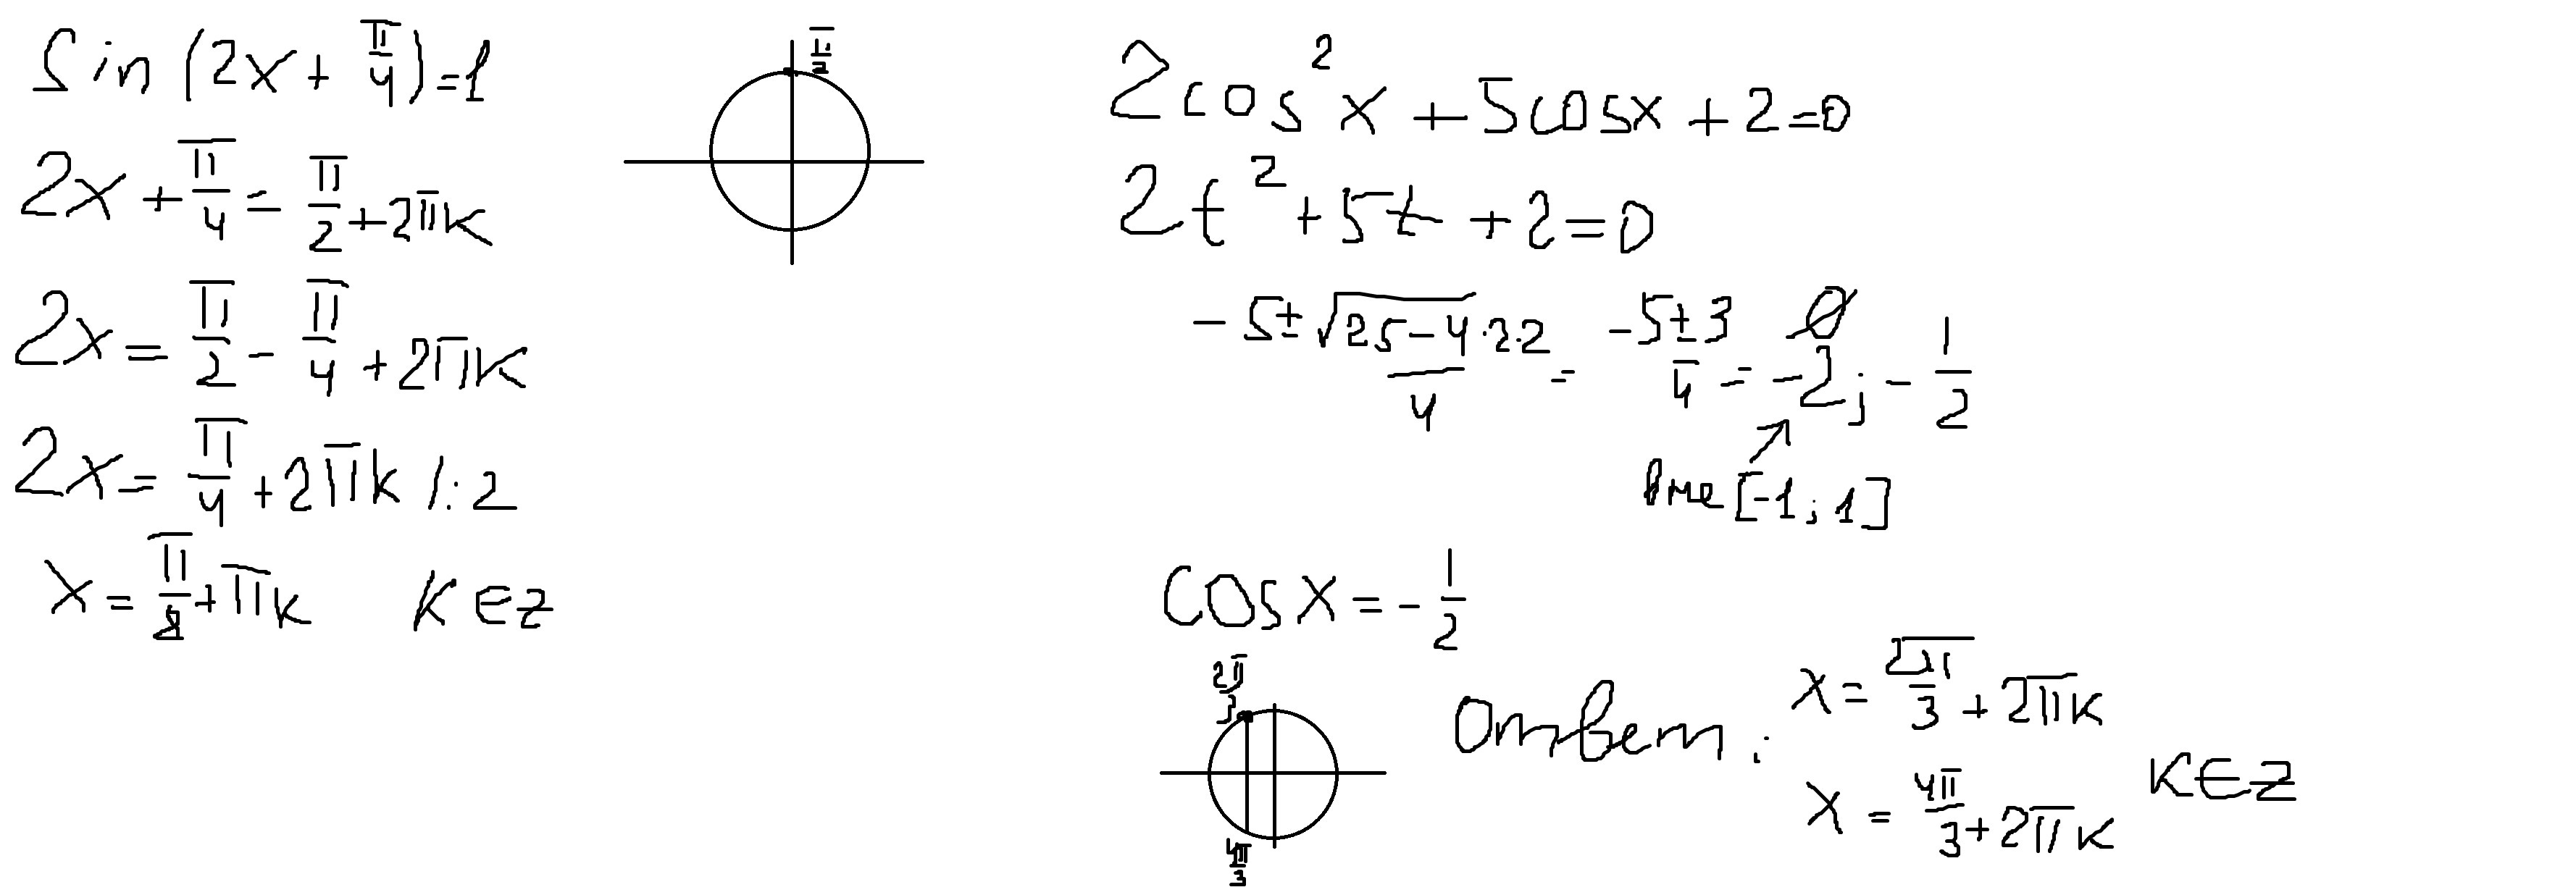 Sin (2x + π/4) = 1
2x + π/4 = π/2 + 2πk
2x = π/2 - π/4 + 2πk
2x = π/4 + 2πk /: 2
x = π/8 + πk   k ∈ z
π/2
2cos²x + 5cosx + 2 = 0
2t² + 5t + 2 = 0
(-5 ± √(25 - 4·2·2))/4 = (-5 ± 3)/4 = -2; -1/2
Ø
вне [-1; 1]
cos x = -1/2
2π/3
4π/3
Ответ: x = 2π/3 + 2πk
x = 4π/3 + 2πk   k ∈ z